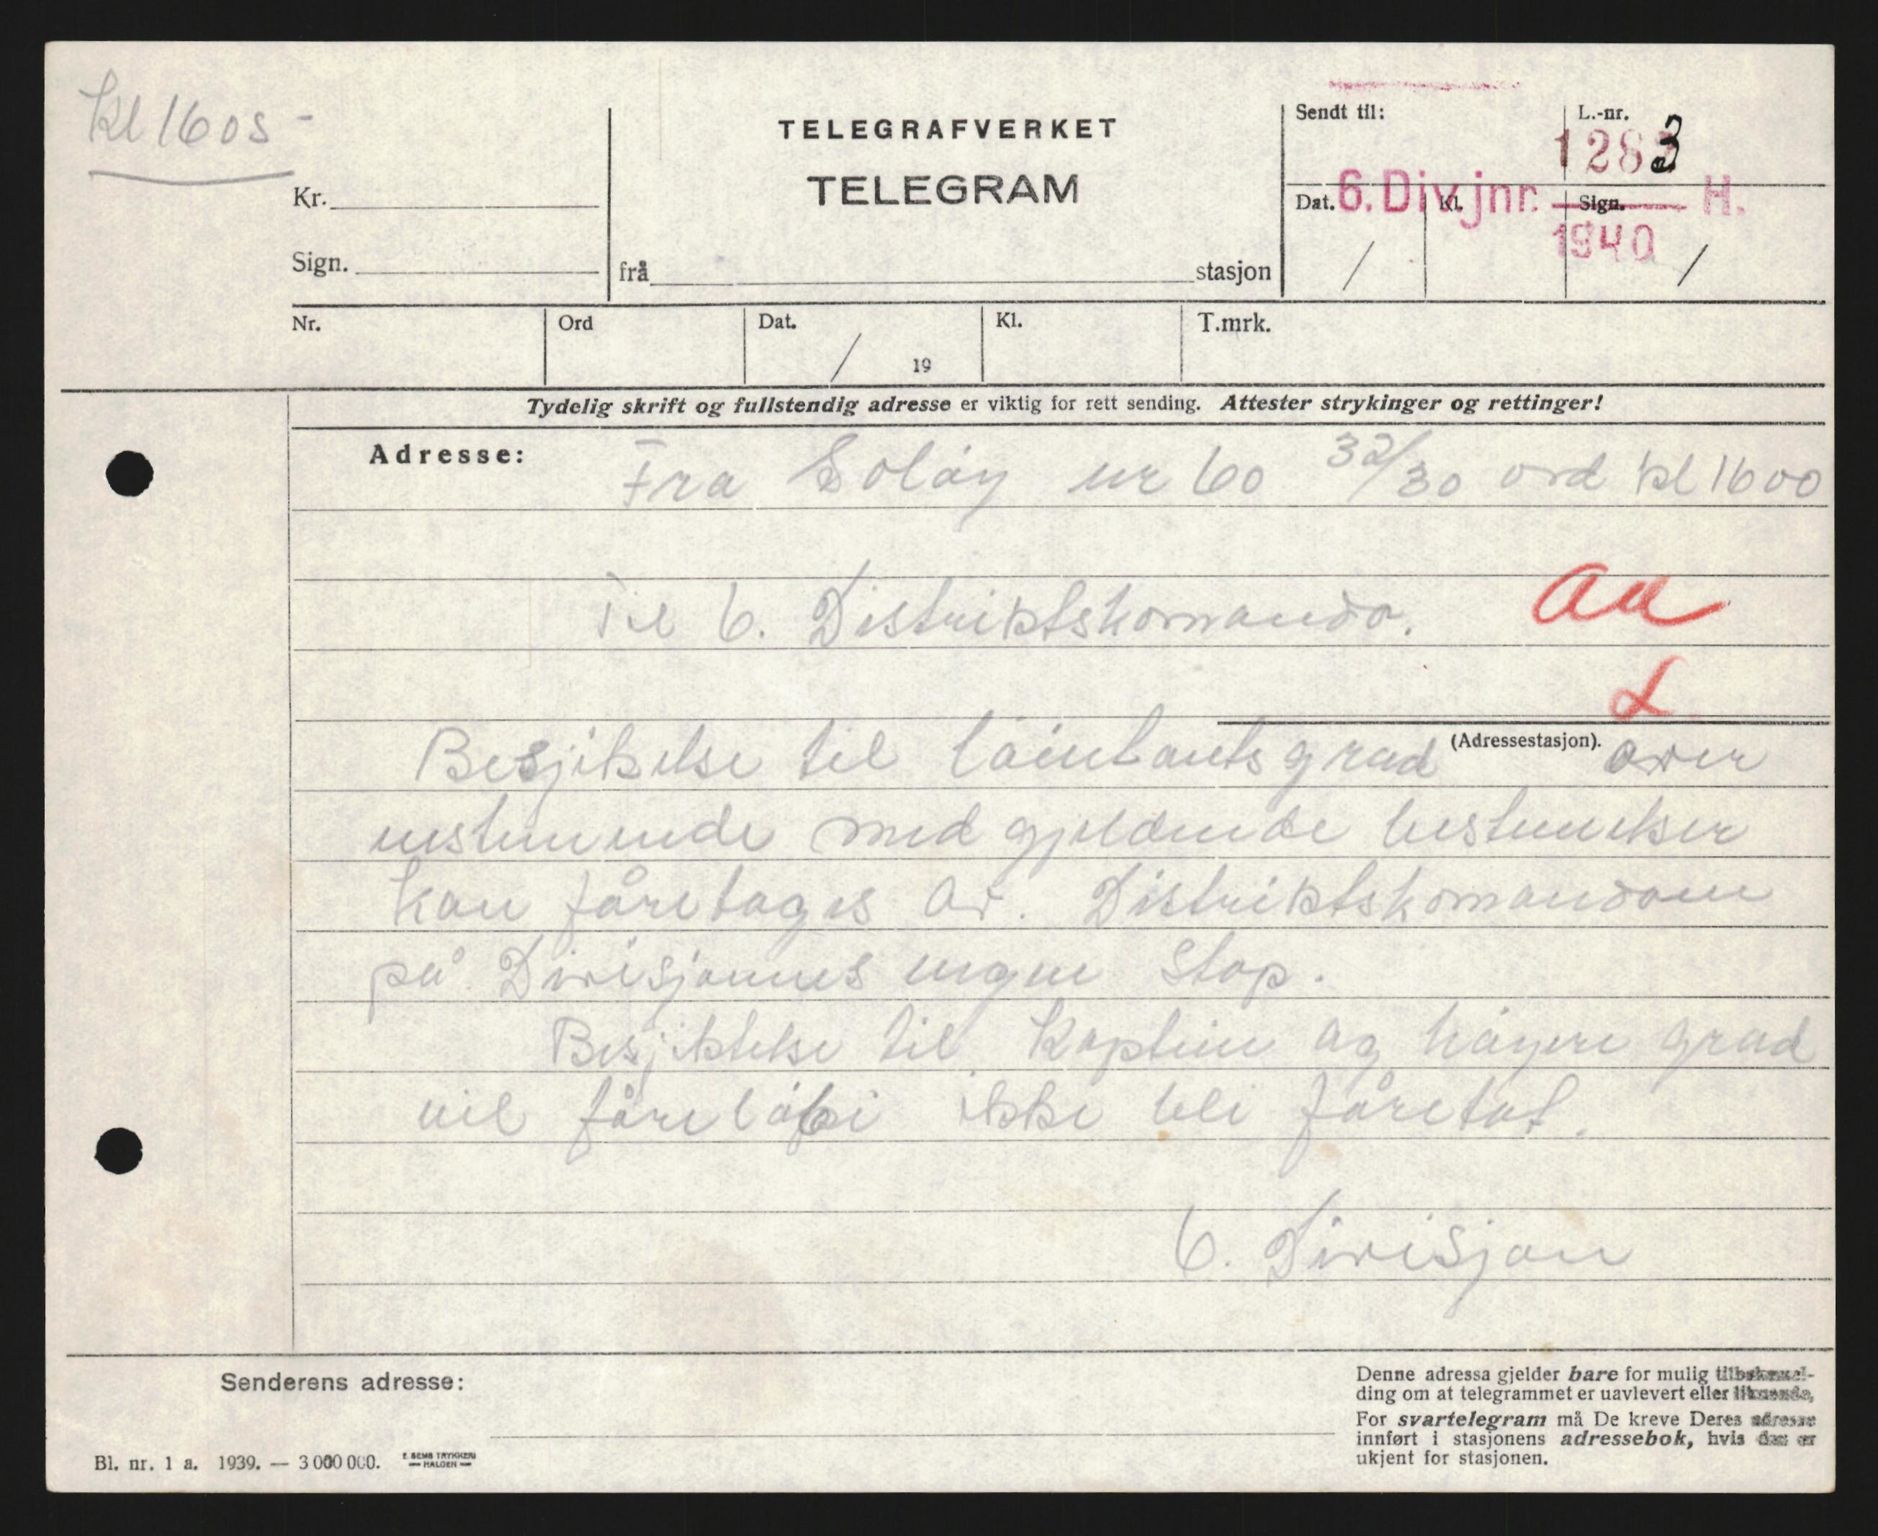 kl 1605 -
TELEGRAFVERKET
TELEGRAM
Kr.
Sign.
frå stasjon
Sendt til:
L.-nr.
1283
Dat. Kl. Sign.
6. Div.jnr. H.
1940
/ /
Nr. Ord Dat. / 19 Kl. T.mrk.
Tydelig skrift og fullstendig adresse er viktig for rett sending. Attester strykinger og rettinger!
Adresse:
Fra Soløy nr 60 32/30 ord kl 1600
Til 6. Distriktskomando.
(Adressestasjon).
Besjikelse til løintantsgrad over
enstemmende med gjeldende bestemelser
kan føretages av. Distriktskomandoen
på Divisjonnes vegne Stop.
Besjiktelse til Kaptein og høyere grad
vil føreløbi ikke bli føretat.
6. Divisjon
Senderens adresse:
Denne adressa gjelder bare for mulig tilbakemel-
ding om at telegrammet er uavlevert eller liknende,
For svartelegram må De kreve Deres adresse
innført i stasjonens adressebok, hvis den er
ukjent for stasjonen.
Bl. nr. 1 a. 1939. — 3 000 000.
E SEMS TRYKKERI
— HALDEN —